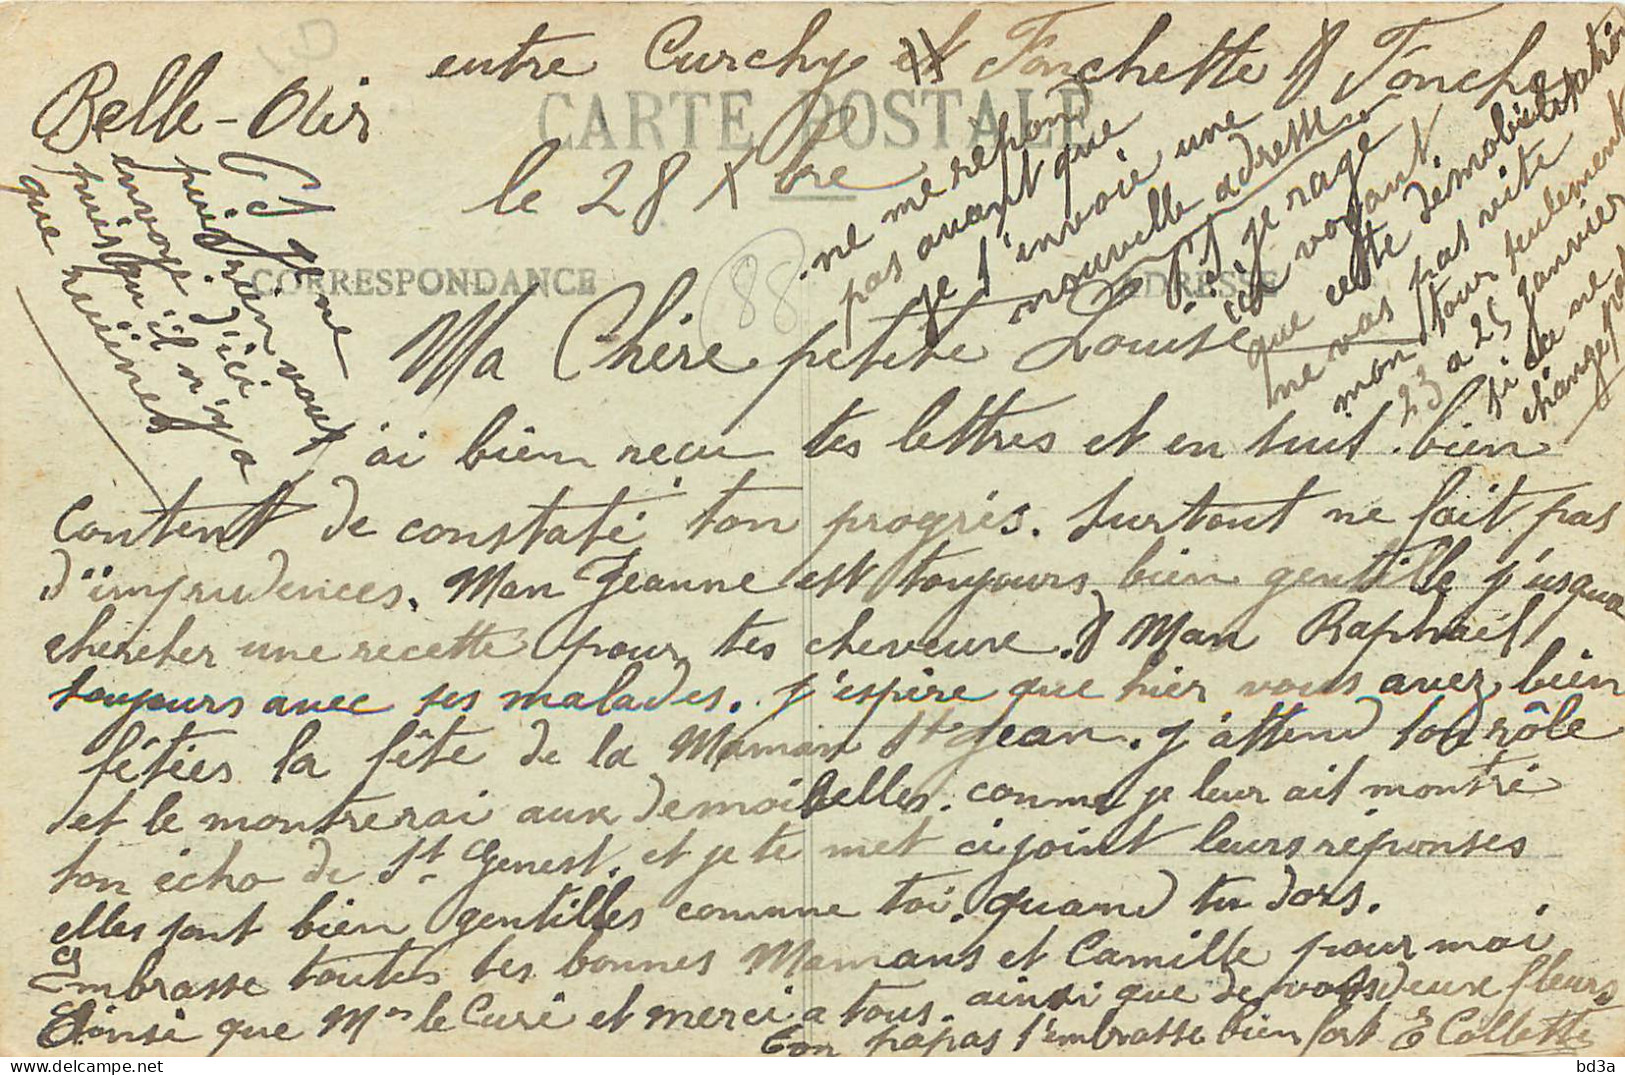 entre Curchy et Fonchette & Fonche
Belle-Air
CARTE POSTALE
le 28 Xbre
CORRESPONDANCE
ADRESSE
88
Et je ne
puis rien vous
envoyé d'ici
puis qu'il n'y a
que ruiines
ne me répond
pas avant que
je t'envoie une
nouvelle adresse
ici je rage
en voyant
que cette démobilisation
ne vas pas vite
mon tour seulement
23 a 25 Janvier
si ça ne
change pas
Ma Chère petite Louise
J'ai bien reçu tes lettres et en suit bien
content de constaté ton progrès. surtout ne fait pas
d'imprudences. Man Jeanne est toujours bien gentille j'usqua
chercher une recette pour tes cheveux. & Man Raphaël
toujours avec ses malades. j'espère que hier vous avez bien
fêtées la fête de la Maman St Jean. j'attend ton rôle
et le montrerai aux demoiselles. comme je leur ait montré
ton écho de St Genest. et je te met ci joint leurs réponses
elles sont bien gentilles comme toi. quand tu dors.
Embrasse toutes tes bonnes Mamans et Camille pour moi
Ainsi que Mr le Curé et merci a tous. ainsi que de vos deux fleurs
Ton papas t'embrasse bien fort E Collette
bd3a